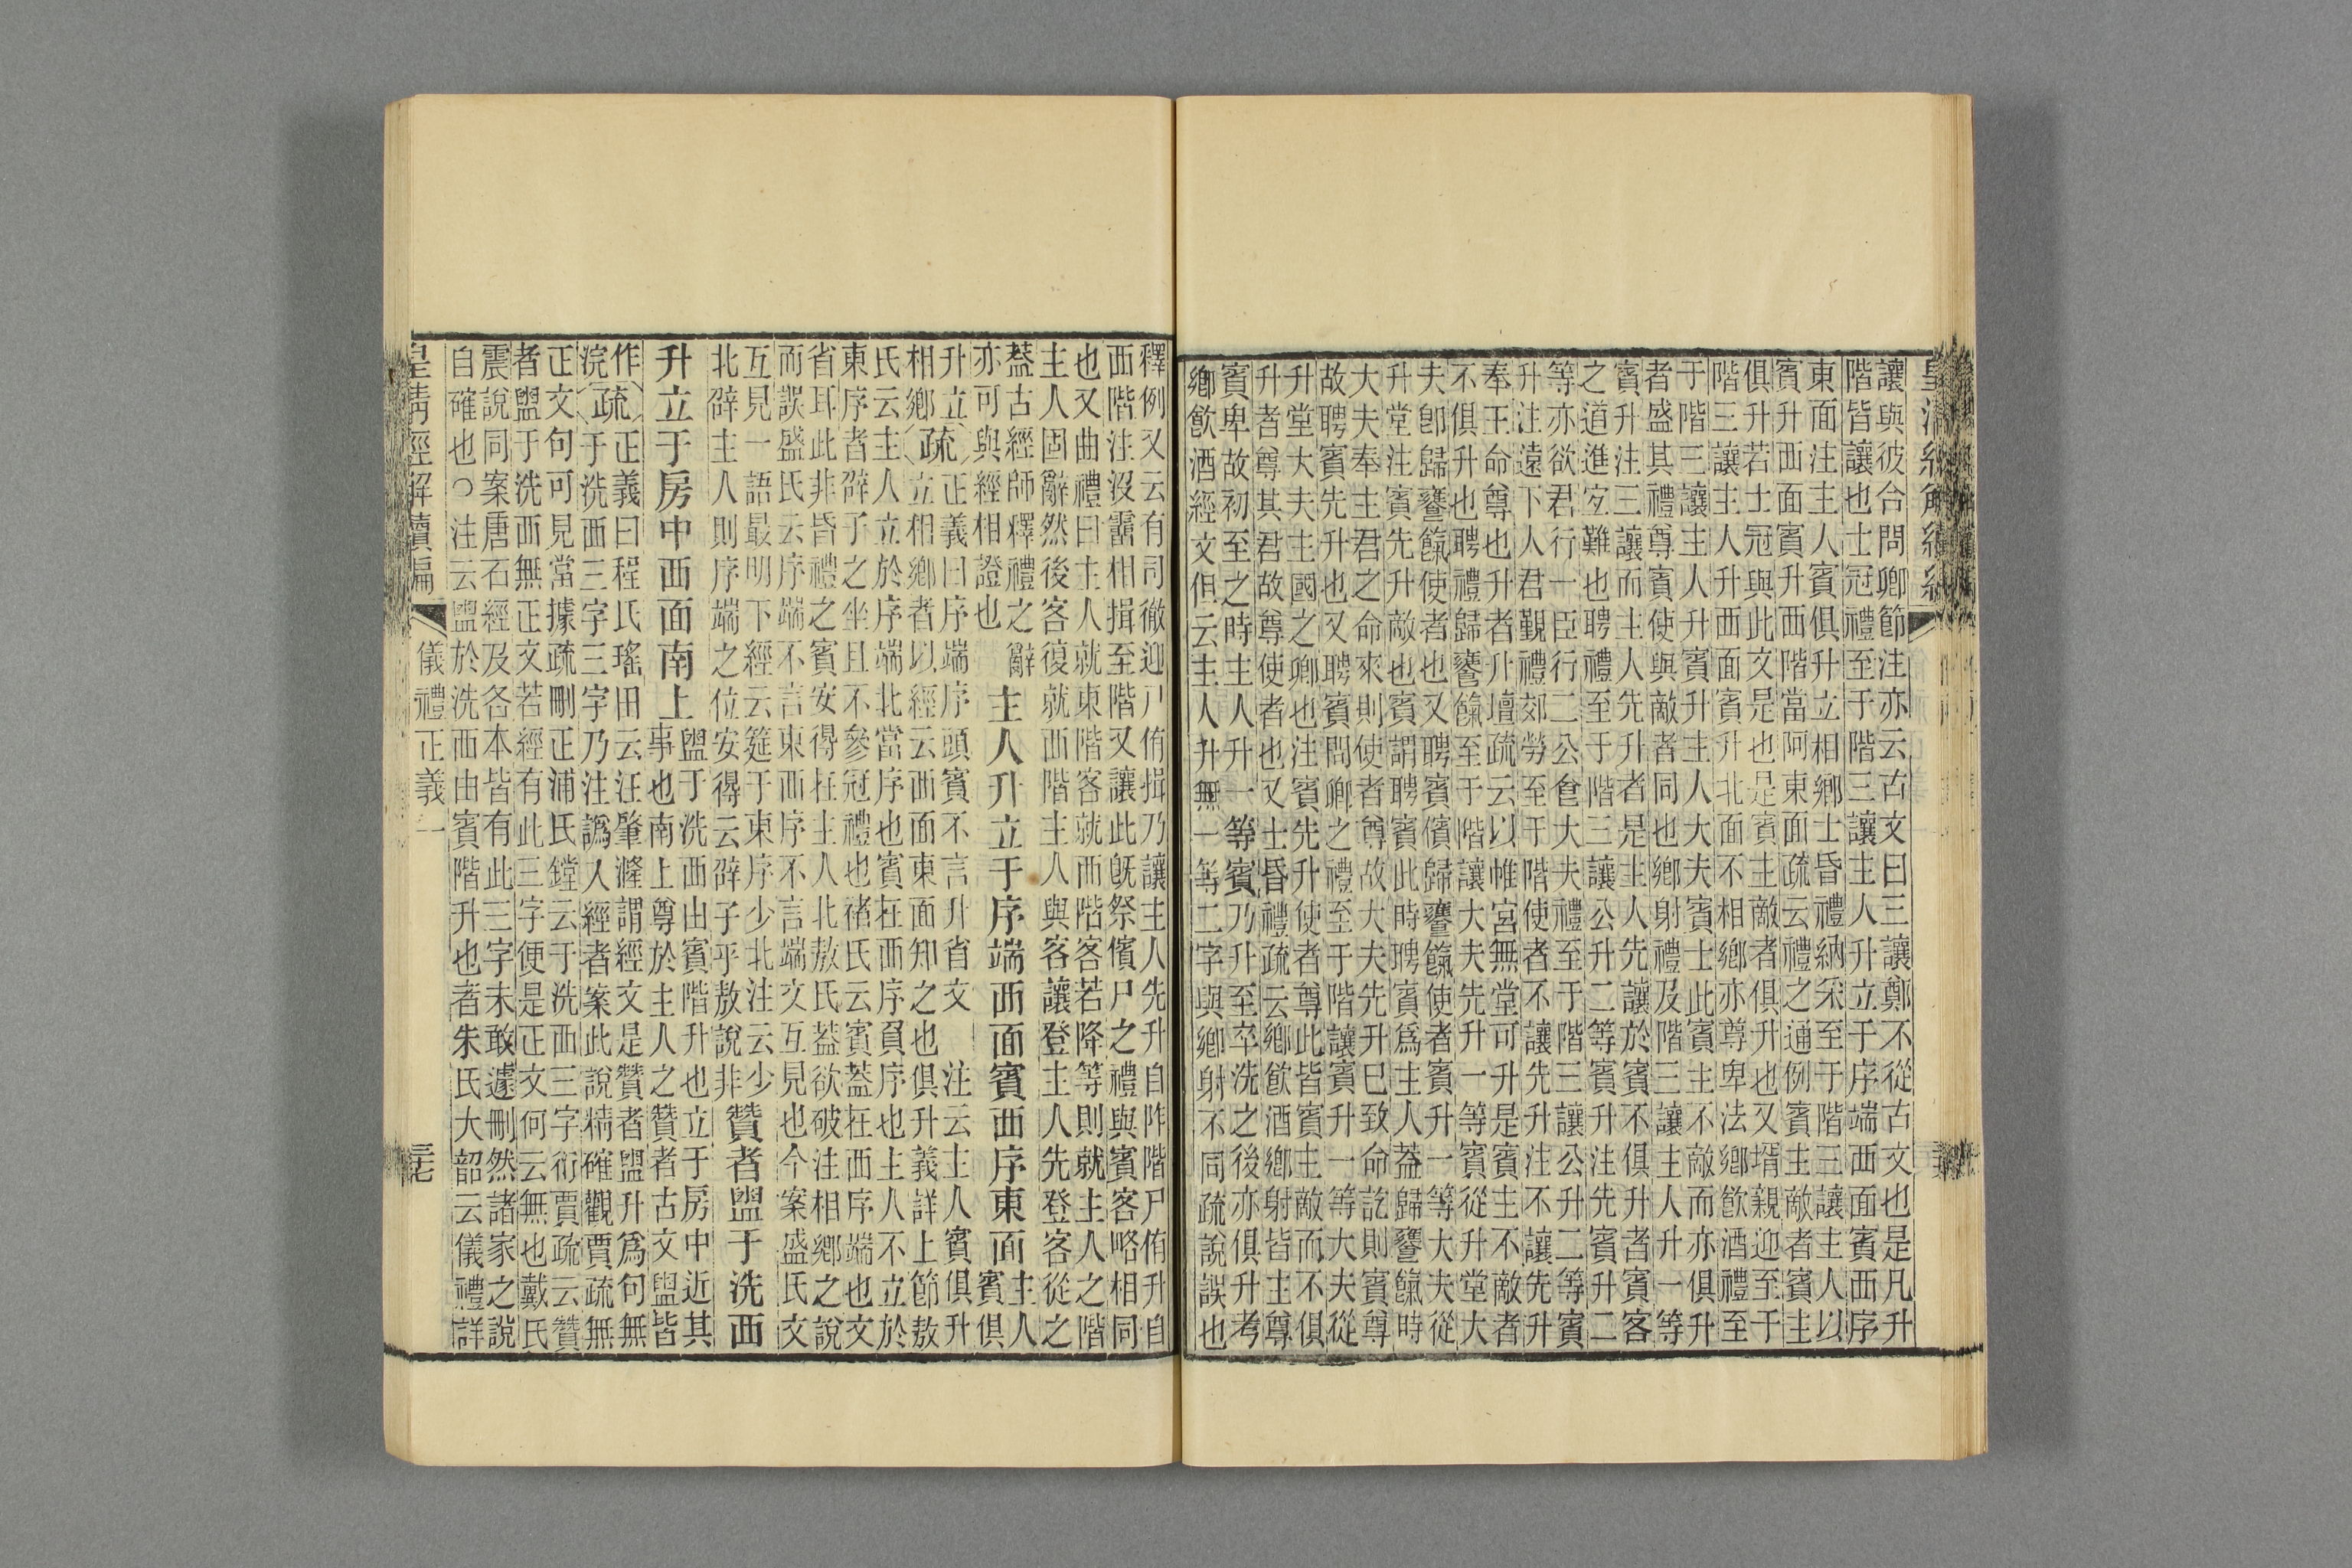 讓與彼合問卿節注亦云古文曰三讓鄭不從古文也是凡升
階皆讓也士冠禮至于階三讓主人升立于序端西面賓西序
東面注主人賓俱升立相鄉士昏禮納采至于階三讓主人以
賓升西面賓升西階當阿東面疏云禮之通例賓主敵者賓主
俱升若士冠與此文是也是賓主敵者俱升也又壻親迎至于
階三讓主人升西面賓升北面不相鄉亦尊卑法鄉飲酒禮至
于階三讓主人升賓升主人大夫賓士此賓主不敵而亦俱升
者盛其禮尊賓使與敵者同也鄉射禮及階三讓主人升一等
賓升注三讓而主人先升者是主人先讓於賓不俱升者賓客
之道進宜難也聘禮至于階三讓公升二等賓升注先賓升二
等亦欲君行一臣行二公食大夫禮至于階三讓公升二等賓
升注遠下人君覲禮郊勞至于階使者不讓先升注不讓先升
奉王命尊也升者升壇疏云以帷宮無堂可升是賓主不敵者
不俱升也聘禮歸饔餼至于階讓大夫先升一等賓從升堂大
夫卽歸饔餼使者也又聘賓儐歸饔餼使者賓升一等大夫從
升堂注賓先升敵也賓謂聘賓此時聘賓爲主人葢歸饔餼時
大夫奉主君之命來則使者尊故大夫先升巳致命訖則賓尊
故聘賓先升也又聘賓問卿之禮至于階讓賓升一等大夫從
升堂大夫主國之卿也注賓先升使者尊此皆賓主敵而不俱
升者尊其君故尊使者也又士昏禮疏云鄉飲酒鄉射皆主尊
賓卑故初至之時主人升一等賓乃升至卒洗之後亦俱升考
鄉飲酒經文但云主人升無一等二字與鄉射不同疏說誤也
釋例又云有司徹迎尸侑揖乃讓主人先升自阼階尸侑升自
西階注沒霤相揖至階又讓此旣祭儐尸之禮與賓客略相同
也又曲禮曰主人就東階客就西階客若降等則就主人之階
主人固辭然後客復就西階主人與客讓登主人先登客從之
葢古經師釋禮之辭
亦可與經相證也
主人升立于序端西面賓西序東面
主人
賓俱
升立
相鄉
疏
正義曰序端序頭賓不言升省文 注云主人賓俱升
立相鄉者以經云西面東面知之也俱升義詳上節敖
氏云主人立於序端北當序也賓在西序負序也主人不立於
東序者辟子之坐且不參冠禮也褚氏云賓葢在西序端也文
省耳此非昏禮之賓安得在主人北敖氏葢欲破注相鄉之說
而誤盛氏云序端不言東西序不言端文互見也今案盛氏文
互見一語最明下經云筵于東序少北注云少
北辟主人則序端之位安得云辟子乎敖說非
贊者盥于洗西
升立于房中西面南上
盥于洗西由賓階升也立于房中近其
事也南上尊於主人之贊者古文盥皆
作
浣
疏
正義曰程氏瑤田云汪肇漋謂經文是贊者盥升爲句無
于洗西三字三字乃注譌入經者案此說精確觀賈疏無
正文句可見當據疏刪正浦氏鏜云于洗西三字衍賈疏云贊
者盥于洗西無正文若經有此三字便是正文何云無也戴氏
震說同案唐石經及各本皆有此三字未敢遽刪然諸家之說
自確也○注云盥於洗西由賓階升也者朱氏大韶云儀禮詳
皇淸經解續編
儀禮正義一